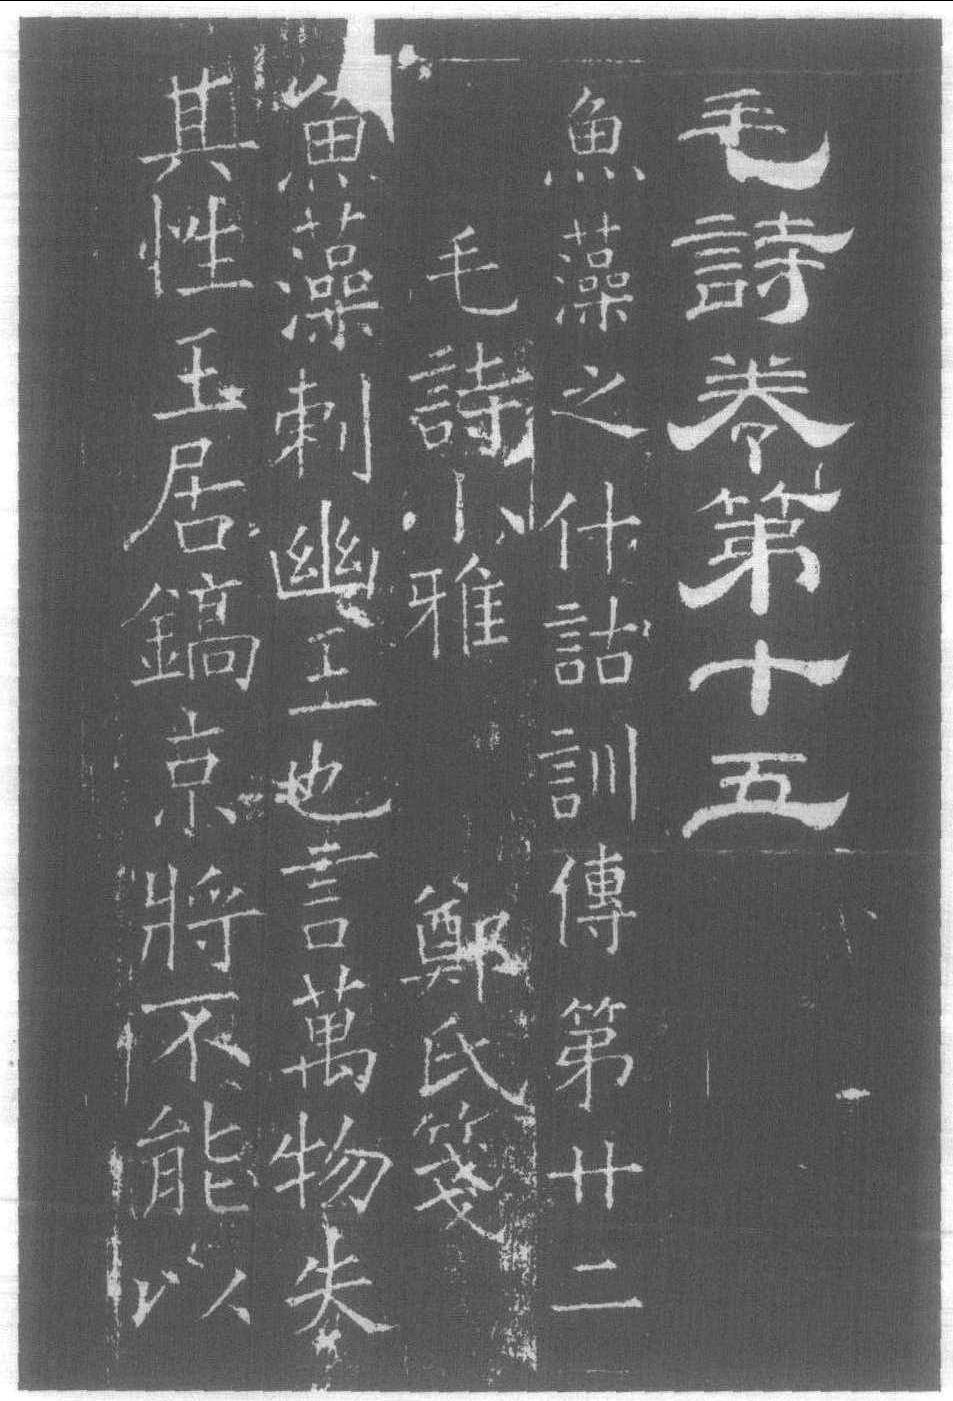 毛詩卷第十五
魚藻之什詁訓傳第廿二
毛詩小雅 鄭氏箋
魚藻刺幽王也言萬物失
其性王居鎬京將不能以